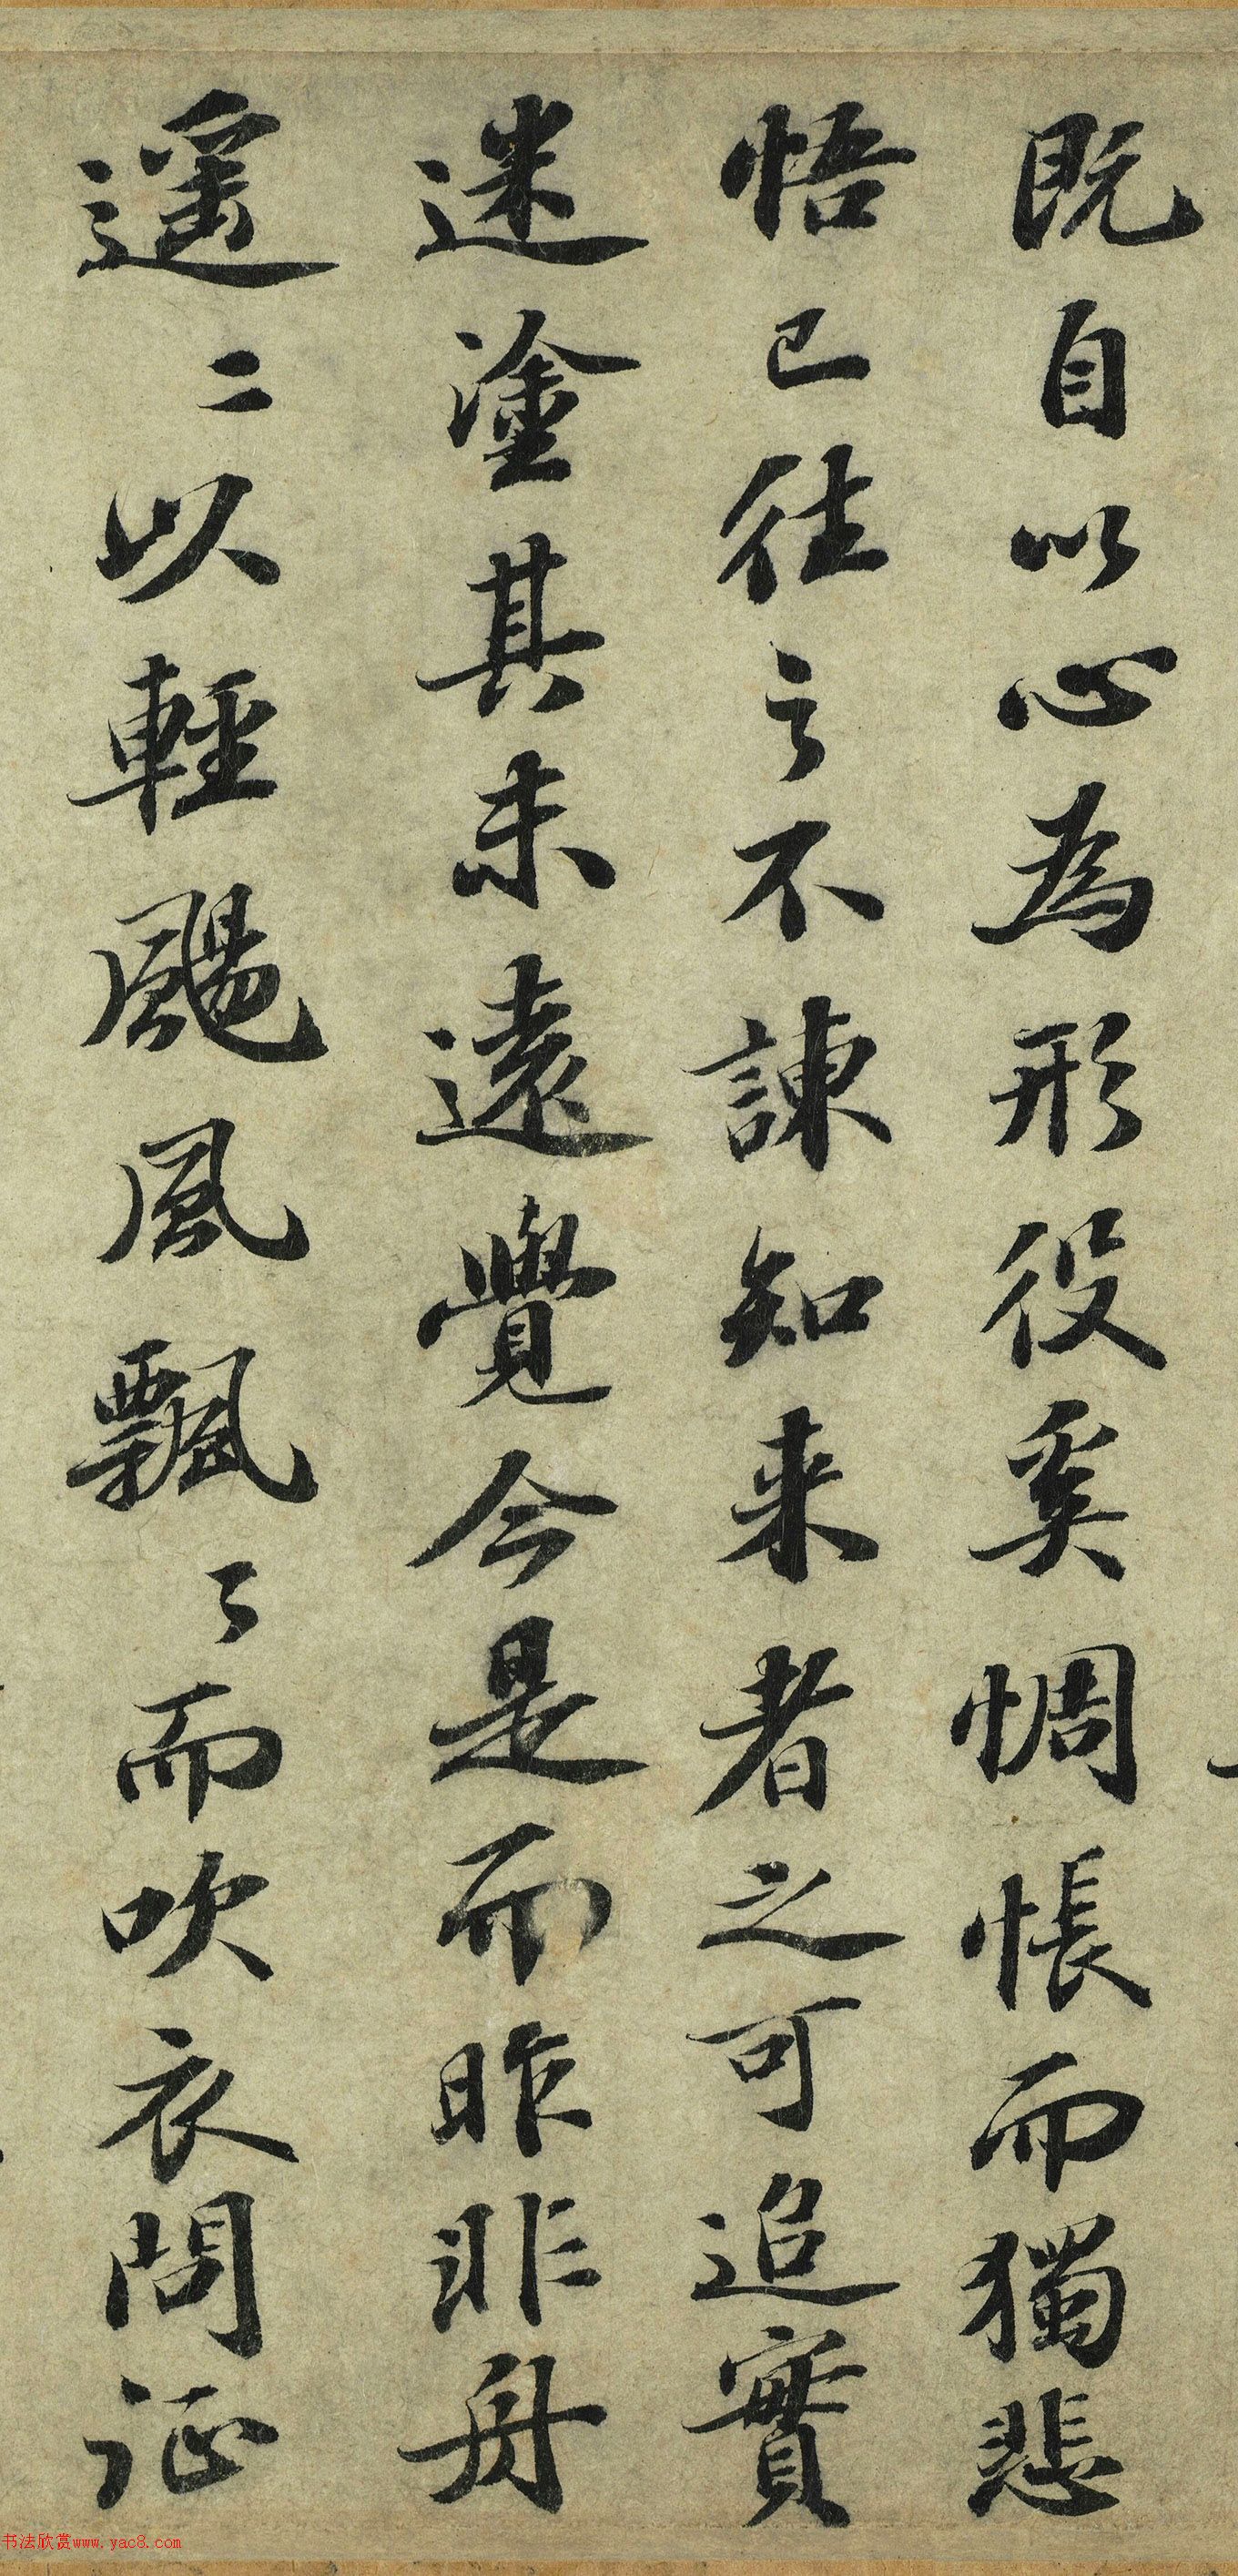 既自以心為形役奚惆悵而獨悲
悟已往之不諫知来者之可追實
迷塗其未遠覺今是而昨非舟
遥二以輕颺風飄々而吹衣問征
书法欣赏www.yac8.com